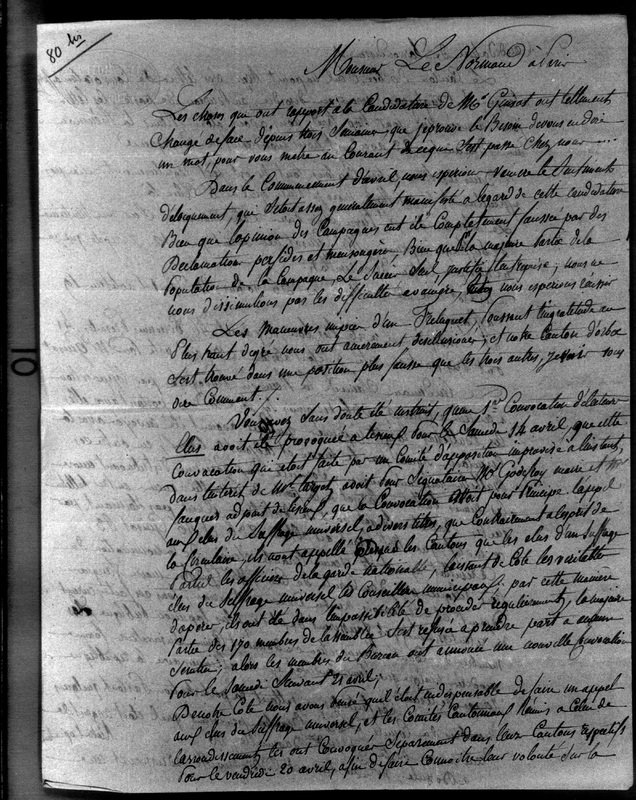 80 bis
Monsieur Le Normand à Paris
Les choses qui ont rapport à la Candidature de Mr. Guizot ont tellement
Changé de face depuis trois Semaines, que j'eprouve le Besoin de vous en dire
un mot, pour vous mettre au Courant de ce qui s'est passé Chez nous
Dans le Commencement d'avril nous esperions vaincre le Sentiment
d'eloignement, qui s'etoit assez generallement manifesté a legard de cette Candidature
Bien que l'opinion des Campagnes eut été Complettement faussée par des
Declamations perfides et mensongères, Bien que la majeure Partie de la
Population de la Campagne,
nous dissimulions pas les difficultés a vaincre, nous esperions
Les manœuvres d'un Trelaquet, l'ingratitude au
Plus haut degré nous ont amerement desillusionné, et notre Canton d'orbec
s'est trouvé dans une position plus fausse que les trois autres, je vais vous
dire Comment.
Vous avez Sans doute été instruit, qu'une 1re Convocation d'electeurs
elus avoit été provoquée a Lisieux Pour le Samedi 14 avril, que cette
Convocation qui etoit faite par un Comité d'opposition improvisé a l'instant,
dans l'interet de Mr. avoit Pour Signataire Mr. Godefroy maire et Mr
fauques adjoint de Lisieux, que la Convocation etoit pour Principe l'appel
aux elus du Suffrage universel, a divers titres, que Contrairement a l'esprit de
la Circulaire, ils n'ont appellé les Cantons que les elus d'un Suffrage
Partiel les officiers de la garde nationalle, laissant de Coté les veritables
elus du Suffrage universel les Conseillers municipaux, par cette manière
d'operer, ils ont été dans l'impossibilité de proceder regulierement, la majeure
Partie des 170 membres de la s'est refusée a prendre part a aucun
Scrutin; alors les membres du Bureau ont annoncé une nouvelle Convocation
Pour le Samedi Suivant 21 avril;
De notre Coté nous avons pensé qu'il etoit indispensable de faire un appel
aux elus du Suffrage universel, et les Comités Cantonnaux Reunis a Celui de
l'arrondissement les ont Convoqué Séparement dans leurs Cantons respectifs
Pour le vendredi 20 avril, afin de faire Connoitre leur volonté Sur la